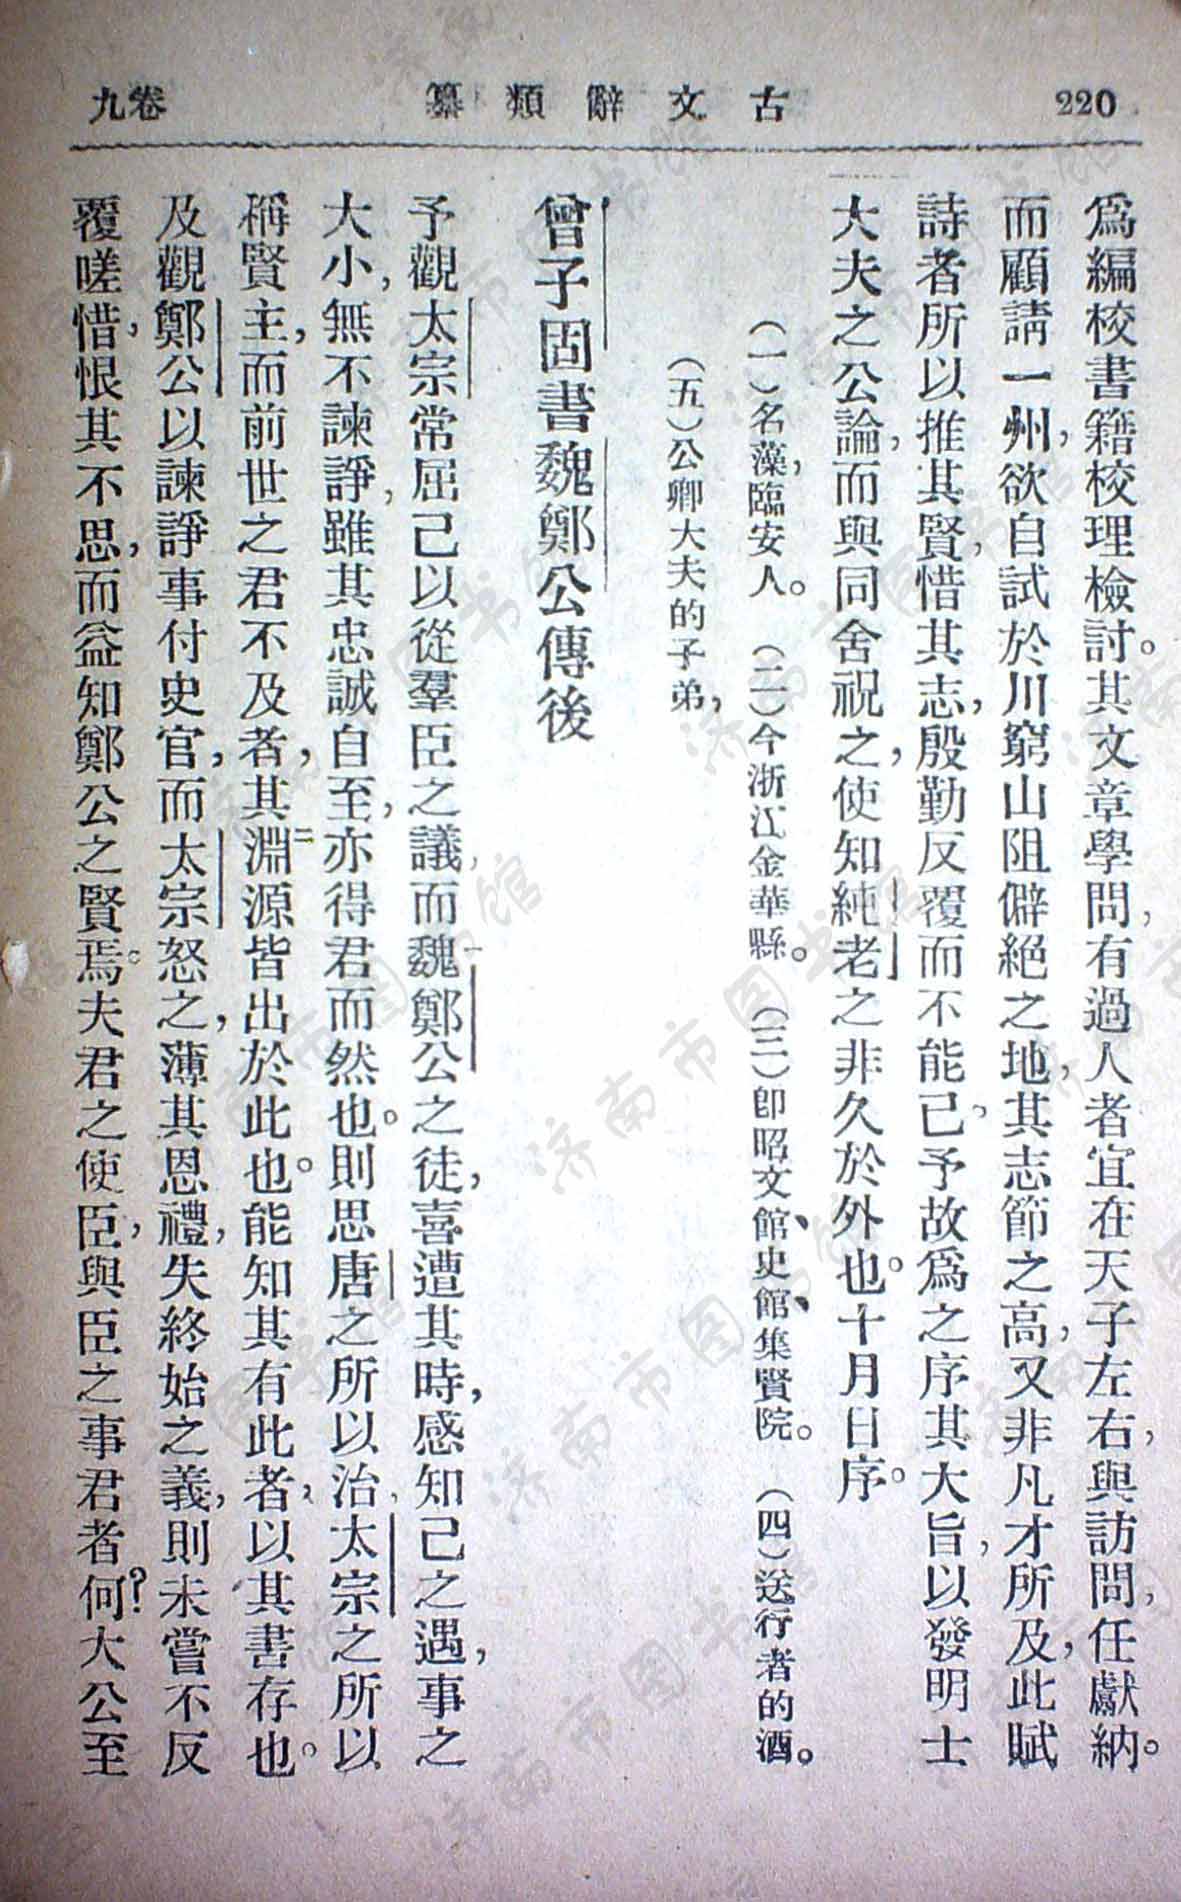 220
古文辭類纂
卷九
爲編校書籍校理檢討。其文章學問,有過人者宜在天子左右,與訪問,任獻納。
而顧請一州,欲自試於川窮山阻僻絕之地,其志節之高,又非凡才所及,此賦
詩者所以推其賢,惜其志,殷勤反覆而不能已,予故爲之序其大旨,以發明士
大夫之公論,而與同舍祝之,使知純老之非久於外也。十月日序。
(一)名藻,臨安人。 (二)今浙江金華縣。 (三)卽昭文館、史館、集賢院。 (四)送行者的酒。
(五)公卿大夫的子弟,
曾子固書魏鄭公傳後
予觀太宗常屈己以從羣臣之議,而魏一鄭公之徒,喜遭其時,感知己之遇,事之
大小,無不諫諍,雖其忠誠自至,亦得君而然也。則思唐之所以治,太宗之所以
稱賢主,而前世之君不及者,其淵二源皆出於此也。能知其有此者,以其書存也。
及觀鄭公以諫諍事付史官,而太宗怒之,薄其恩禮,失終始之義,則未嘗不反
覆嗟惜,恨其不思,而益知鄭公之賢焉。夫君之使臣,與臣之事君者何?大公至
济南市图书馆